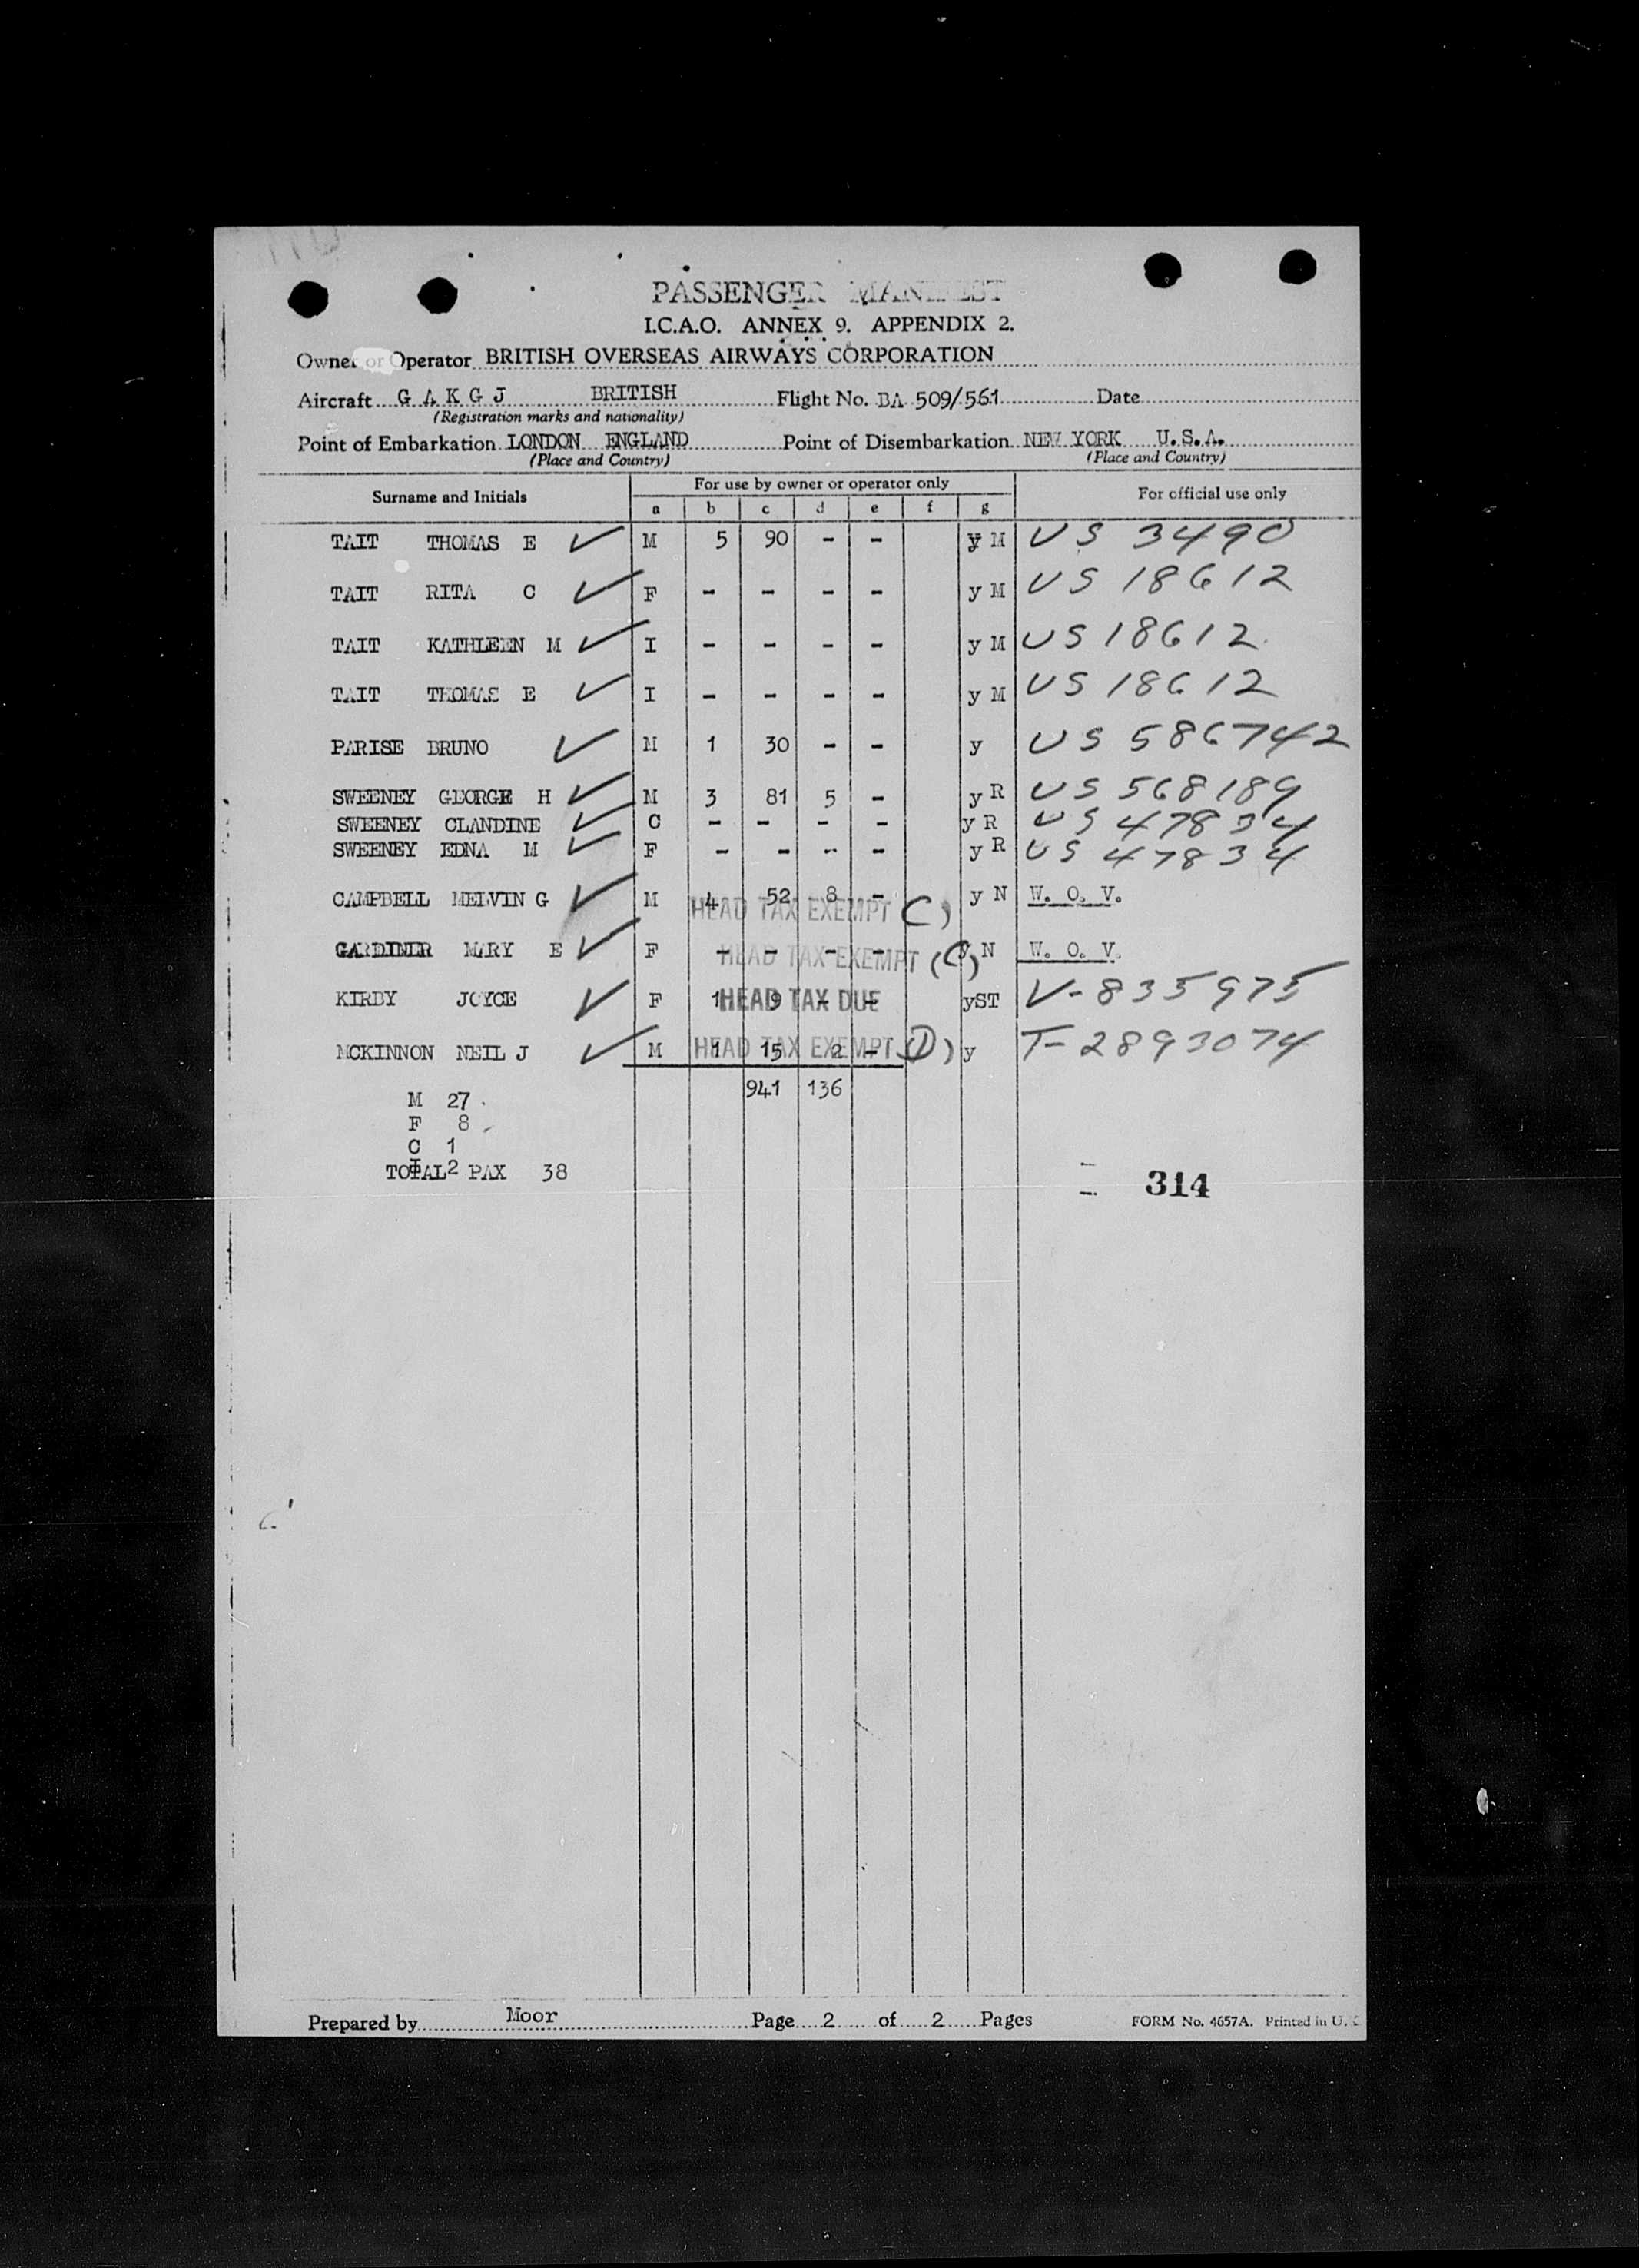 PASSENGER MANIFEST
I.C.A.O. ANNEX 9. APPENDIX 2.
Owner or Operator BRITISH OVERSEAS AIRWAYS CORPORATION
Aircraft G A K G J BRITISH Flight No. BA 509/561 Date
(Registration marks and nationality)
Point of Embarkation LONDON ENGLAND Point of Disembarkation NEW YORK U.S.A.
(Place and Country) (Place and Country)
Surname and Initials For use by owner or operator only For official use only
a b c d e f g
TAIT THOMAS E ✓ M 5 90 - - y M US 3490
TAIT RITA C ✓ F - - - - y M US 18612
TAIT KATHLEEN M ✓ I - - - - y M US 18612
TAIT THOMAS E ✓ I - - - - y M US 18612
PARISE BRUNO ✓ M 1 30 - - y US 586742
SWEENEY GEORGE H ✓ M 3 81 5 - y R US 568189
SWEENEY CLANDINE ✓ C - - - - y R US 47834
SWEENEY EDNA M ✓ F - - - - y R US 47834
CAMPBELL MELVIN G ✓ M 4 52 8 - y N W. O. V.
HEAD TAX EXEMPT (C)
GARDINER MARY E ✓ F - - - - y N W. O. V.
HEAD TAX EXEMPT (C)
KIRBY JOYCE ✓ F 1 9 - - yST V-835975
HEAD TAX DUE
MCKINNON NEIL J ✓ M 1 15 2 - y T-2893074
HEAD TAX EXEMPT (D)
941 136
M 27
F 8
C 1
I 2
TOTAL PAX 38
314
Prepared by Moor Page 2 of 2 Pages FORM No. 4657A. Printed in U.K.